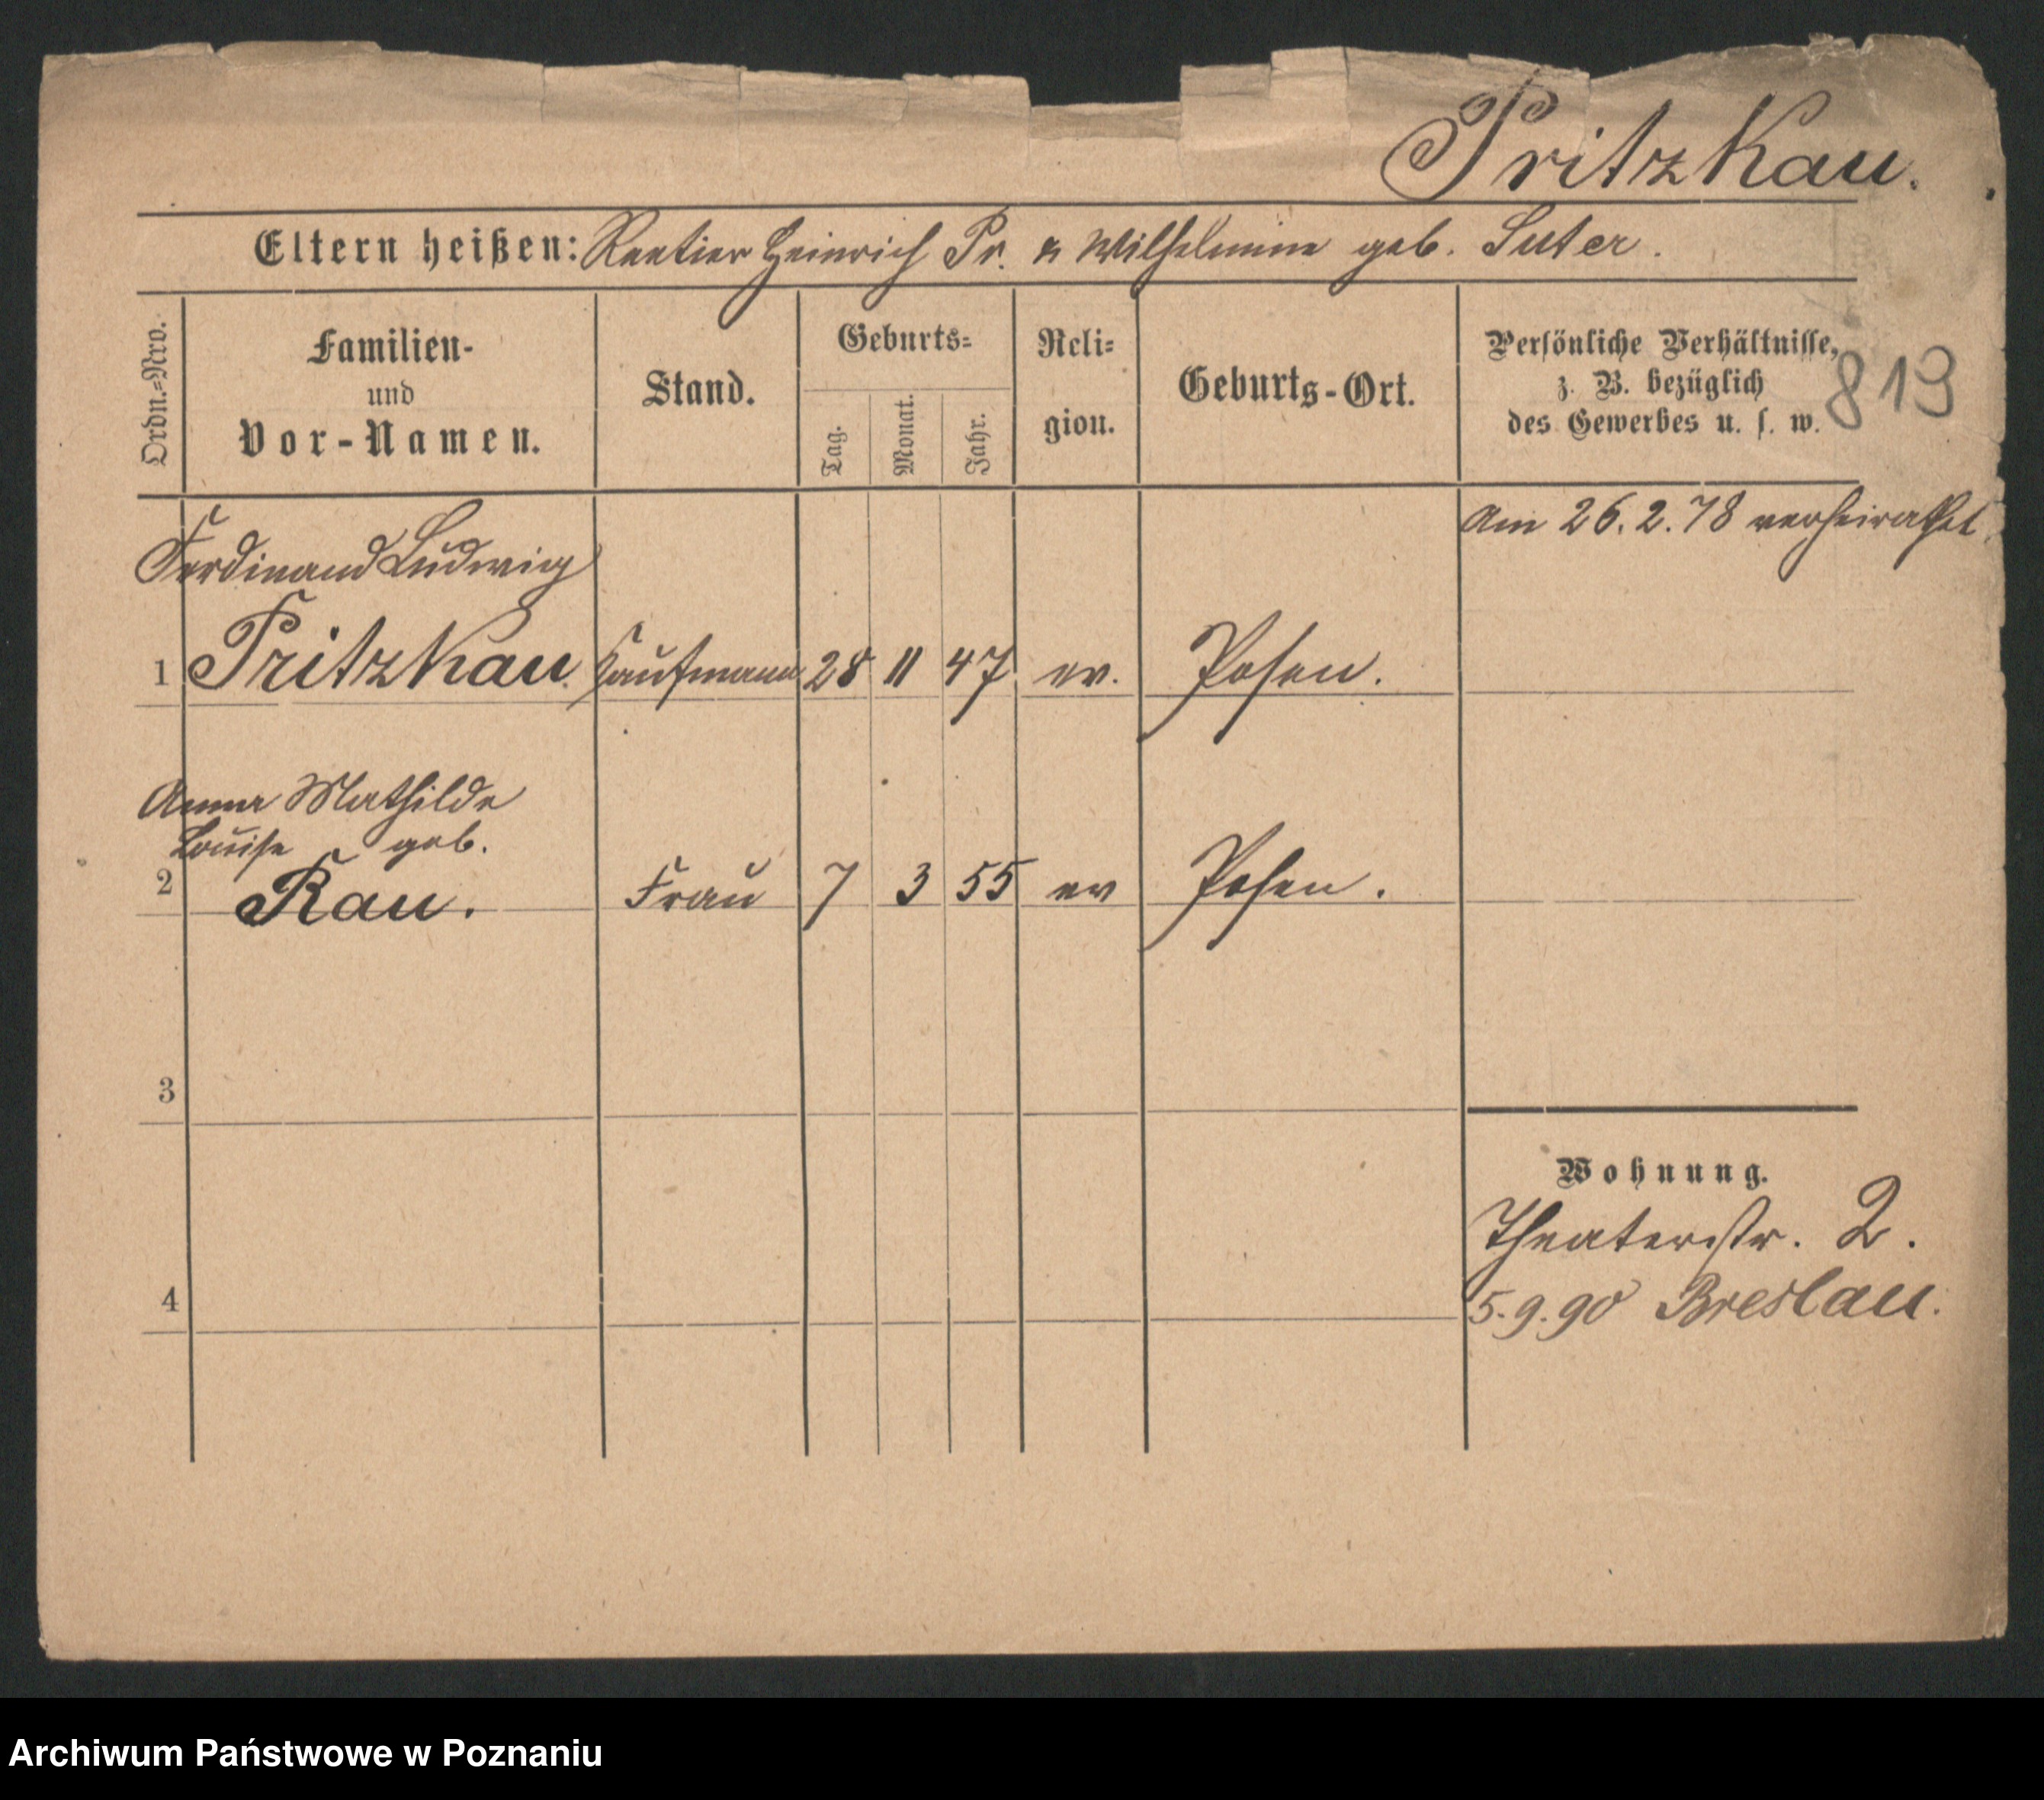 Pritzkau.
Eltern heißen: Rentier Heinrich Pr. & Wilhelmine geb. Suter.
Ordn.=Nro.
Familien-
und
Vor-Namen.
Stand.
Geburts=
Tag.
Monat.
Jahr.
Reli=
gion.
Geburts-Ort.
Persönliche Verhältnisse,
z. B. bezüglich
des Gewerbes u. s. w.
819
Am 26.2.78 verheirathet.
Ferdinand Ludwig
1 Pritzkau. Kaufmann 28 11 47 ev. Posen.
Anna Mathilde
Louise geb.
2 Rau. Frau 7 3 55 ev Posen.
3
Wohnung.
Theaterstr. 2.
4
5.9.90 Breslau.
Archiwum Państwowe w Poznaniu